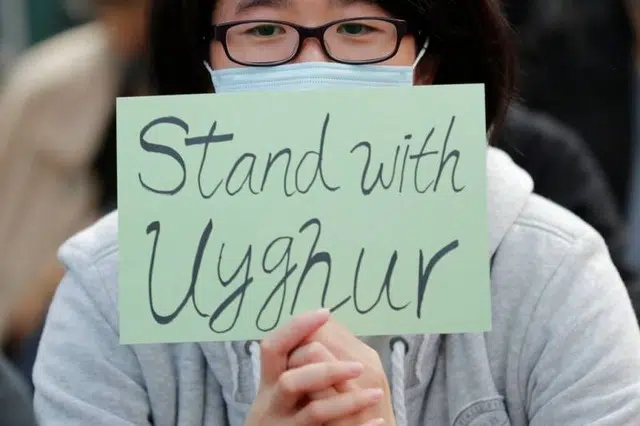 Stand with
Uyghur